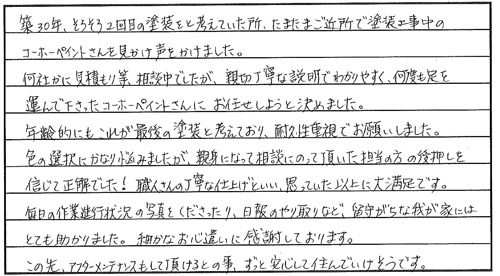 築30年、そろそろ2回目の塗装をと考えていた所、たまたまご近所で塗装工事中の
コーホーペイントさんを見かけ声をかけました。
何社かに見積もり等、相談中でしたが、親切丁寧な説明でわかりやすく、何度も足を
運んで下さったコーホーペイントさんに お任せしようと決めました。
年齢的にもこれが最後の塗装と考えており、耐久性重視でお願いしました。
色の選択にかなり悩みましたが、親身になって相談にのって頂いた担当の方の後押しを
信じて正解でした！ 職人さんの丁寧な仕上げといい、思っていた以上に大満足です。
毎日の作業進行状況の写真をくださったり、日報のやり取りなど、留守がちな我が家には
とても助かりました。 細かなお心遣いに感謝しております。
この先、アフターメンテナンスもして頂けるとの事、ずっと安心して住んでいけそうです。